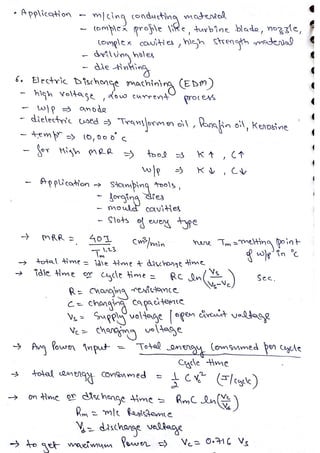 • Application - m/cing conducting material
- complex profile like, turbine blade, nozzle,
complex cavities, high strength material
- drilling holes
- die-sinking
6. Electric Discharge machining (EDM)
- high voltage, low current process
- w/p ⇒ anode
- dielectric used ⇒ Transformer oil, Parafin oil, Kerosine
- temp ⇒ 10,000°C
- for High MRR ⇒ tool ⇒ K↑, C↑
w/p ⇒ K↓, C↓
- Application → Stamping tools,
- forging dies
- mould cavities
- slots of every type
→ MRR = 401 / Tm^1.23 cm³/min here Tm = melting point
of w/p in °C
→ total time = idle time + discharge time
→ idle time or cycle time = RC ln(Vs / (Vs - Vc)) sec.
R = charging resistance
C = charging capacitence
Vs = Supply voltage / open circuit voltage
Vc = charging voltage
→ Avg Power input = Total energy consumed per cycle / Cycle time
→ total energy consumed = 1/2 C Vc² (J/cycle)
→ on time or discharge time = RmC ln(Vc / Vd)
Rm = m/c Resistance
Vd = discharge voltage
→ to get maximum Power ⇒ Vc = 0.716 Vs